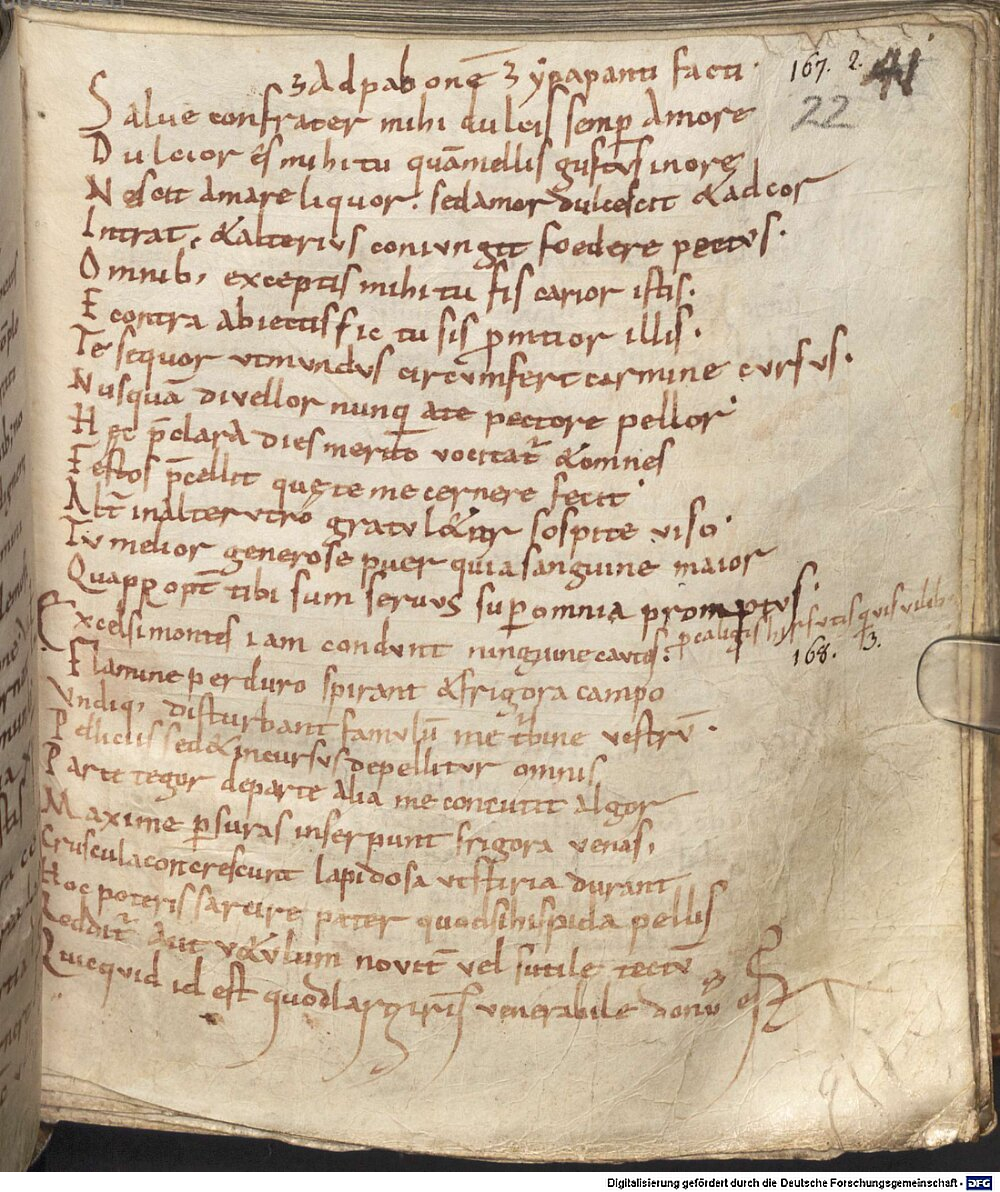 Ad pabonē ypapanti facti. 167. 2. 41
22
Salue confrater mihi dulcis semp amore
Dulcior ēs mihi tu quā mellis gustus in ore
Nescit amare liquor. sed amor dulcescit & ad cor
Intrat, & alterius coniungit foedere pectus.
Omnib, exceptis mihi tu sis carior istis.
E contra abiectis sic tu sis pmtior illis.
Te sequor ut mundus circūmfert carmine cursus.
Nusquā diuellor nunq a te pectore pellor
Hęc p̄clara dies merito uocitat & omnes
Festos p̄cellit quę te me cernere fecit
Alt in alterutro gratul& sospite uiso.
Tu melior generose puer quia sanguine maior
Quappopt tibi sum seruus sup omnia promptus.
Excelsi montes iam condunt ningune cautes. p caligis hirsutis quis
168. 3.
Flamine perduro spirant & frigora campo
Undiq, disturbant famulū me tbine uestrū.
Pelliciis sed & incursus depellitur omnis
Parte tegor de parte alia me concutit algor
Maxime p suras inserpunt frigora uenas,
Cruscula concrescunt lapidosa ut stiria durant
Hoc poteris sarcire pater quod si hispida pellis
Reddit aut u&ulum nouit uel sutile tectū
Quicquid id est quod largiris uenerabile donū est
Digitalisierung gefördert durch die Deutsche Forschungsgemeinschaft - DFG